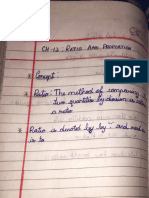 CH-12: RATIO AND PROPORTION
* Concept:
* Ratio: The method of comparing
two quantities by division is called
a ratio
* Ratio is denoted by by ":" and read as
is to